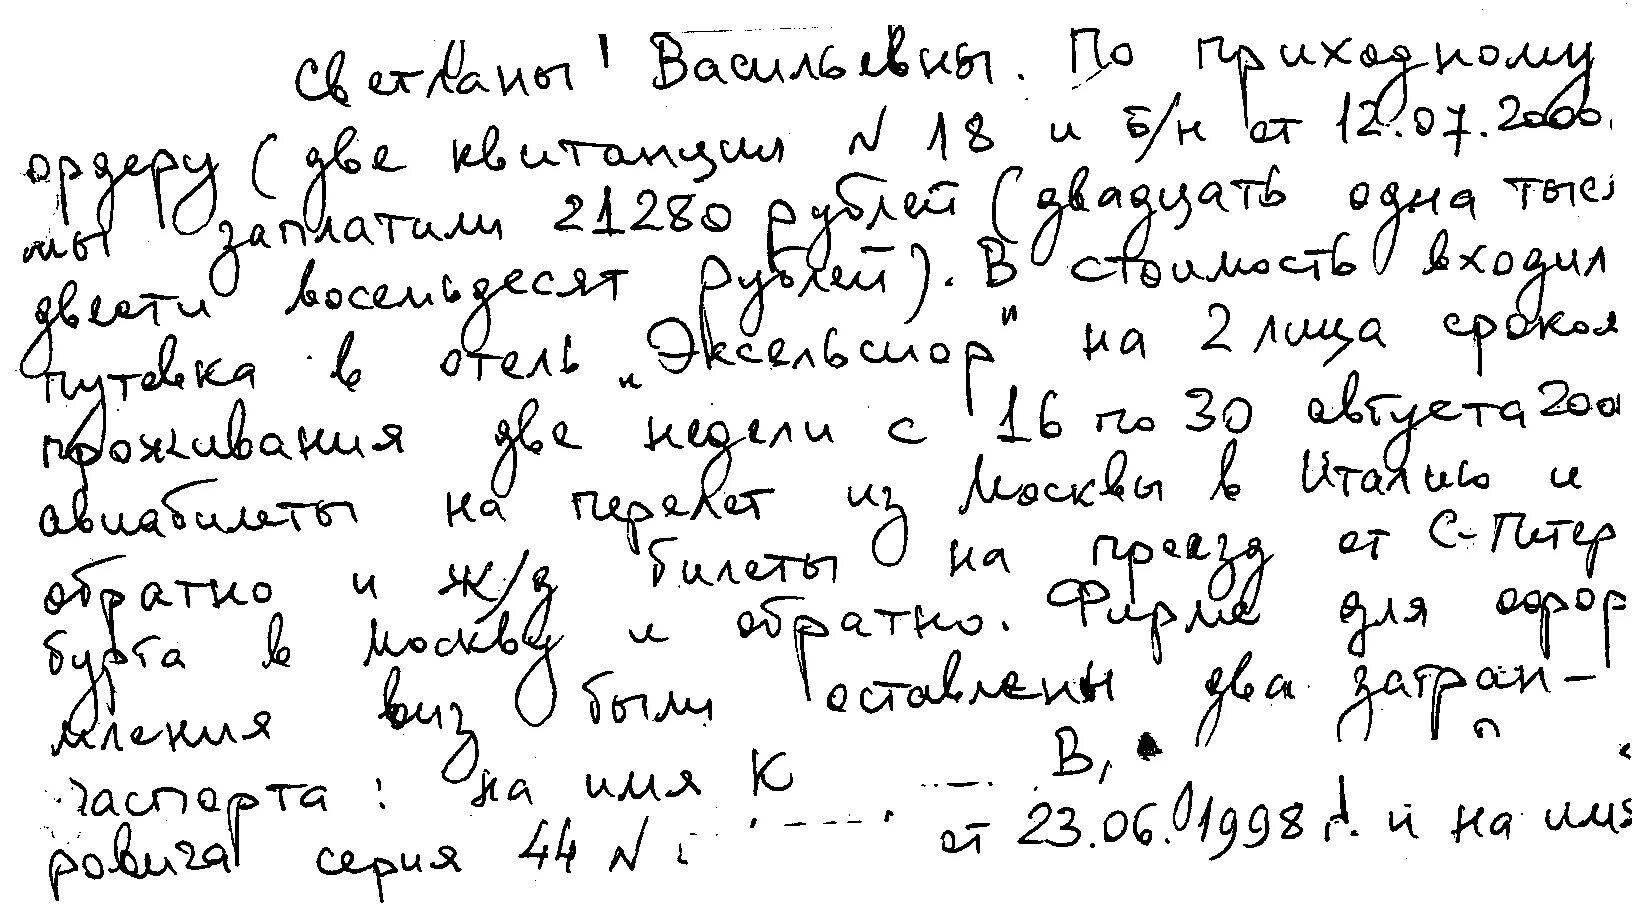 Светланы Васильевны. По приходному
ордеру (две квитанции N 18 и б/н от 12.07.2000.
мы заплатили 21280 рублей (двадцать одна тыс
двести восемьдесят рублей). В стоимость входил
путевка в отель „Эксельсиор" на 2 лица сроком
проживания две недели с 16 по 30 августа 200
авиабилеты на перелет из Москвы в Италию и
обратно и ж/д билеты на проезд от С-Петер
бурга в Москву и обратно. Фирме для офор
мления виз были оставлены два загран-
паспорта: на имя К В,
ровича серия 44 N от 23.06.1998 г. и на имя